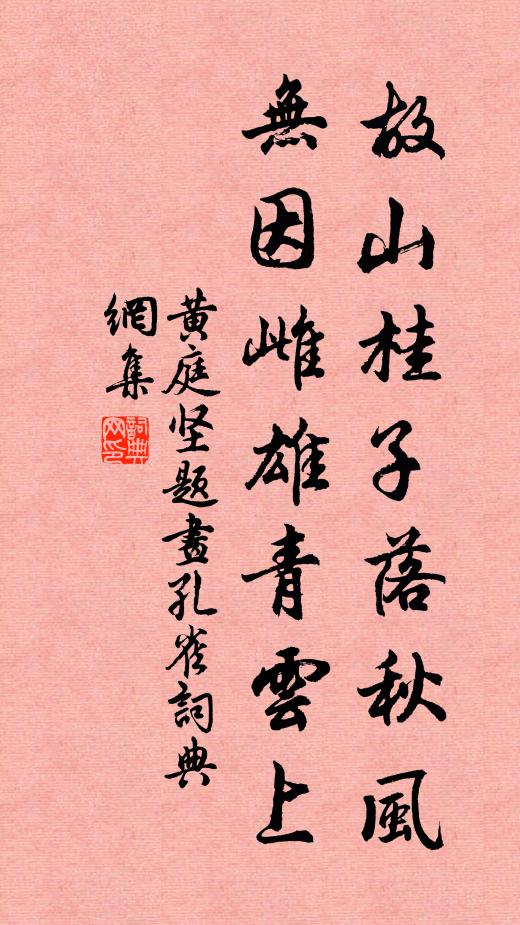 故山桂子落秋風
無因雌雄青雲上
黄庭坚题畫孔雀詞典
網集
詞典
网印